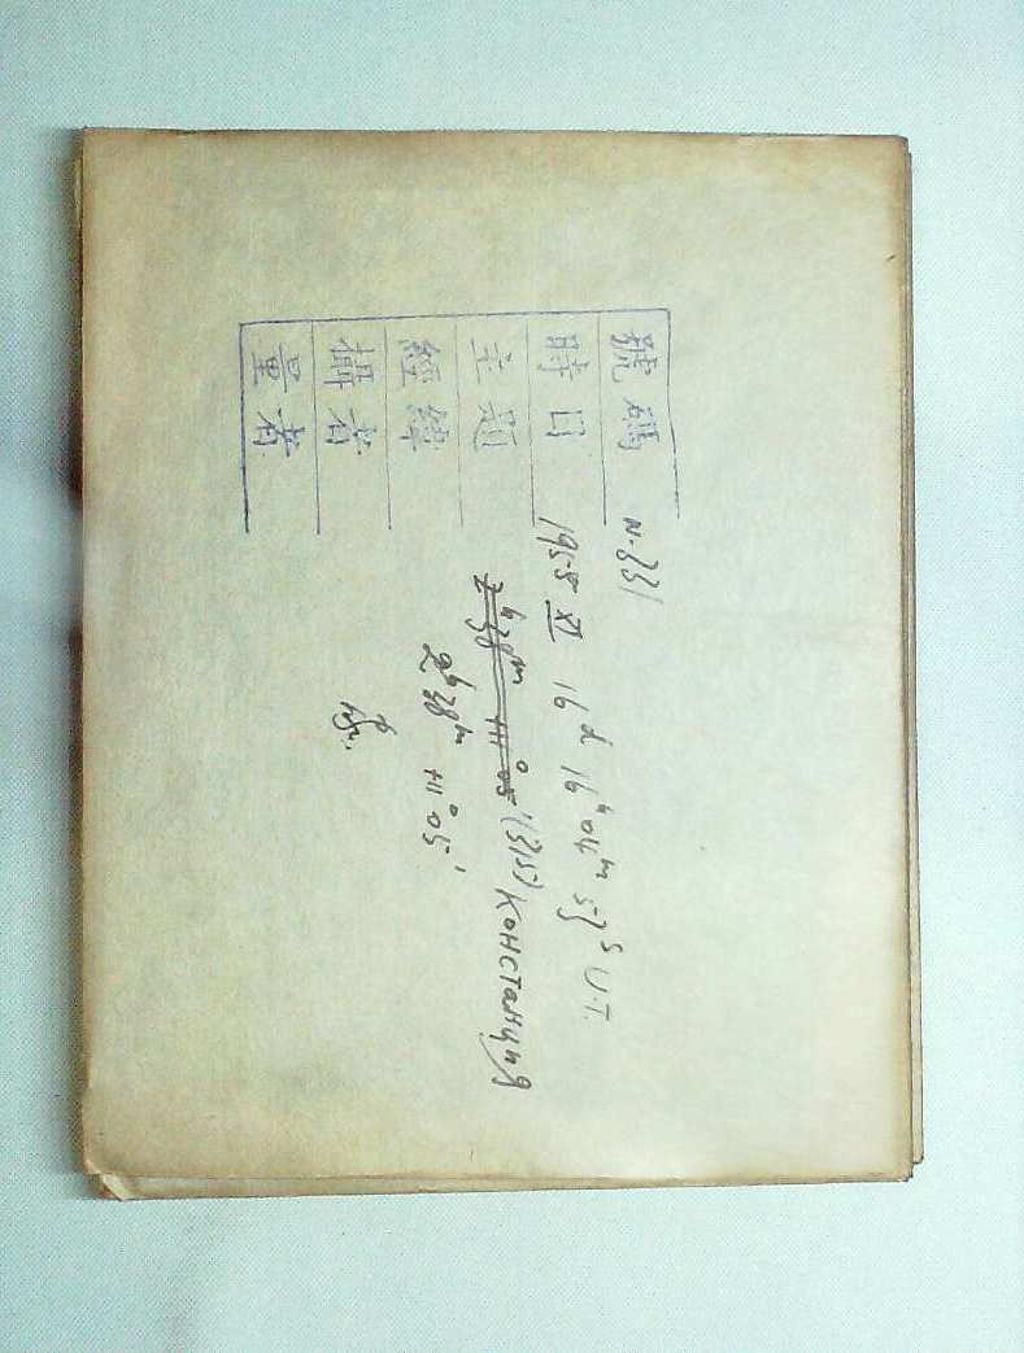 號碼 N.331
時日 1955 XI 16d 16h 04m 53s U.T.
主題 2h38m +11°05'(315) Констанция
經緯 2h38m +11°05'
攝者
量者